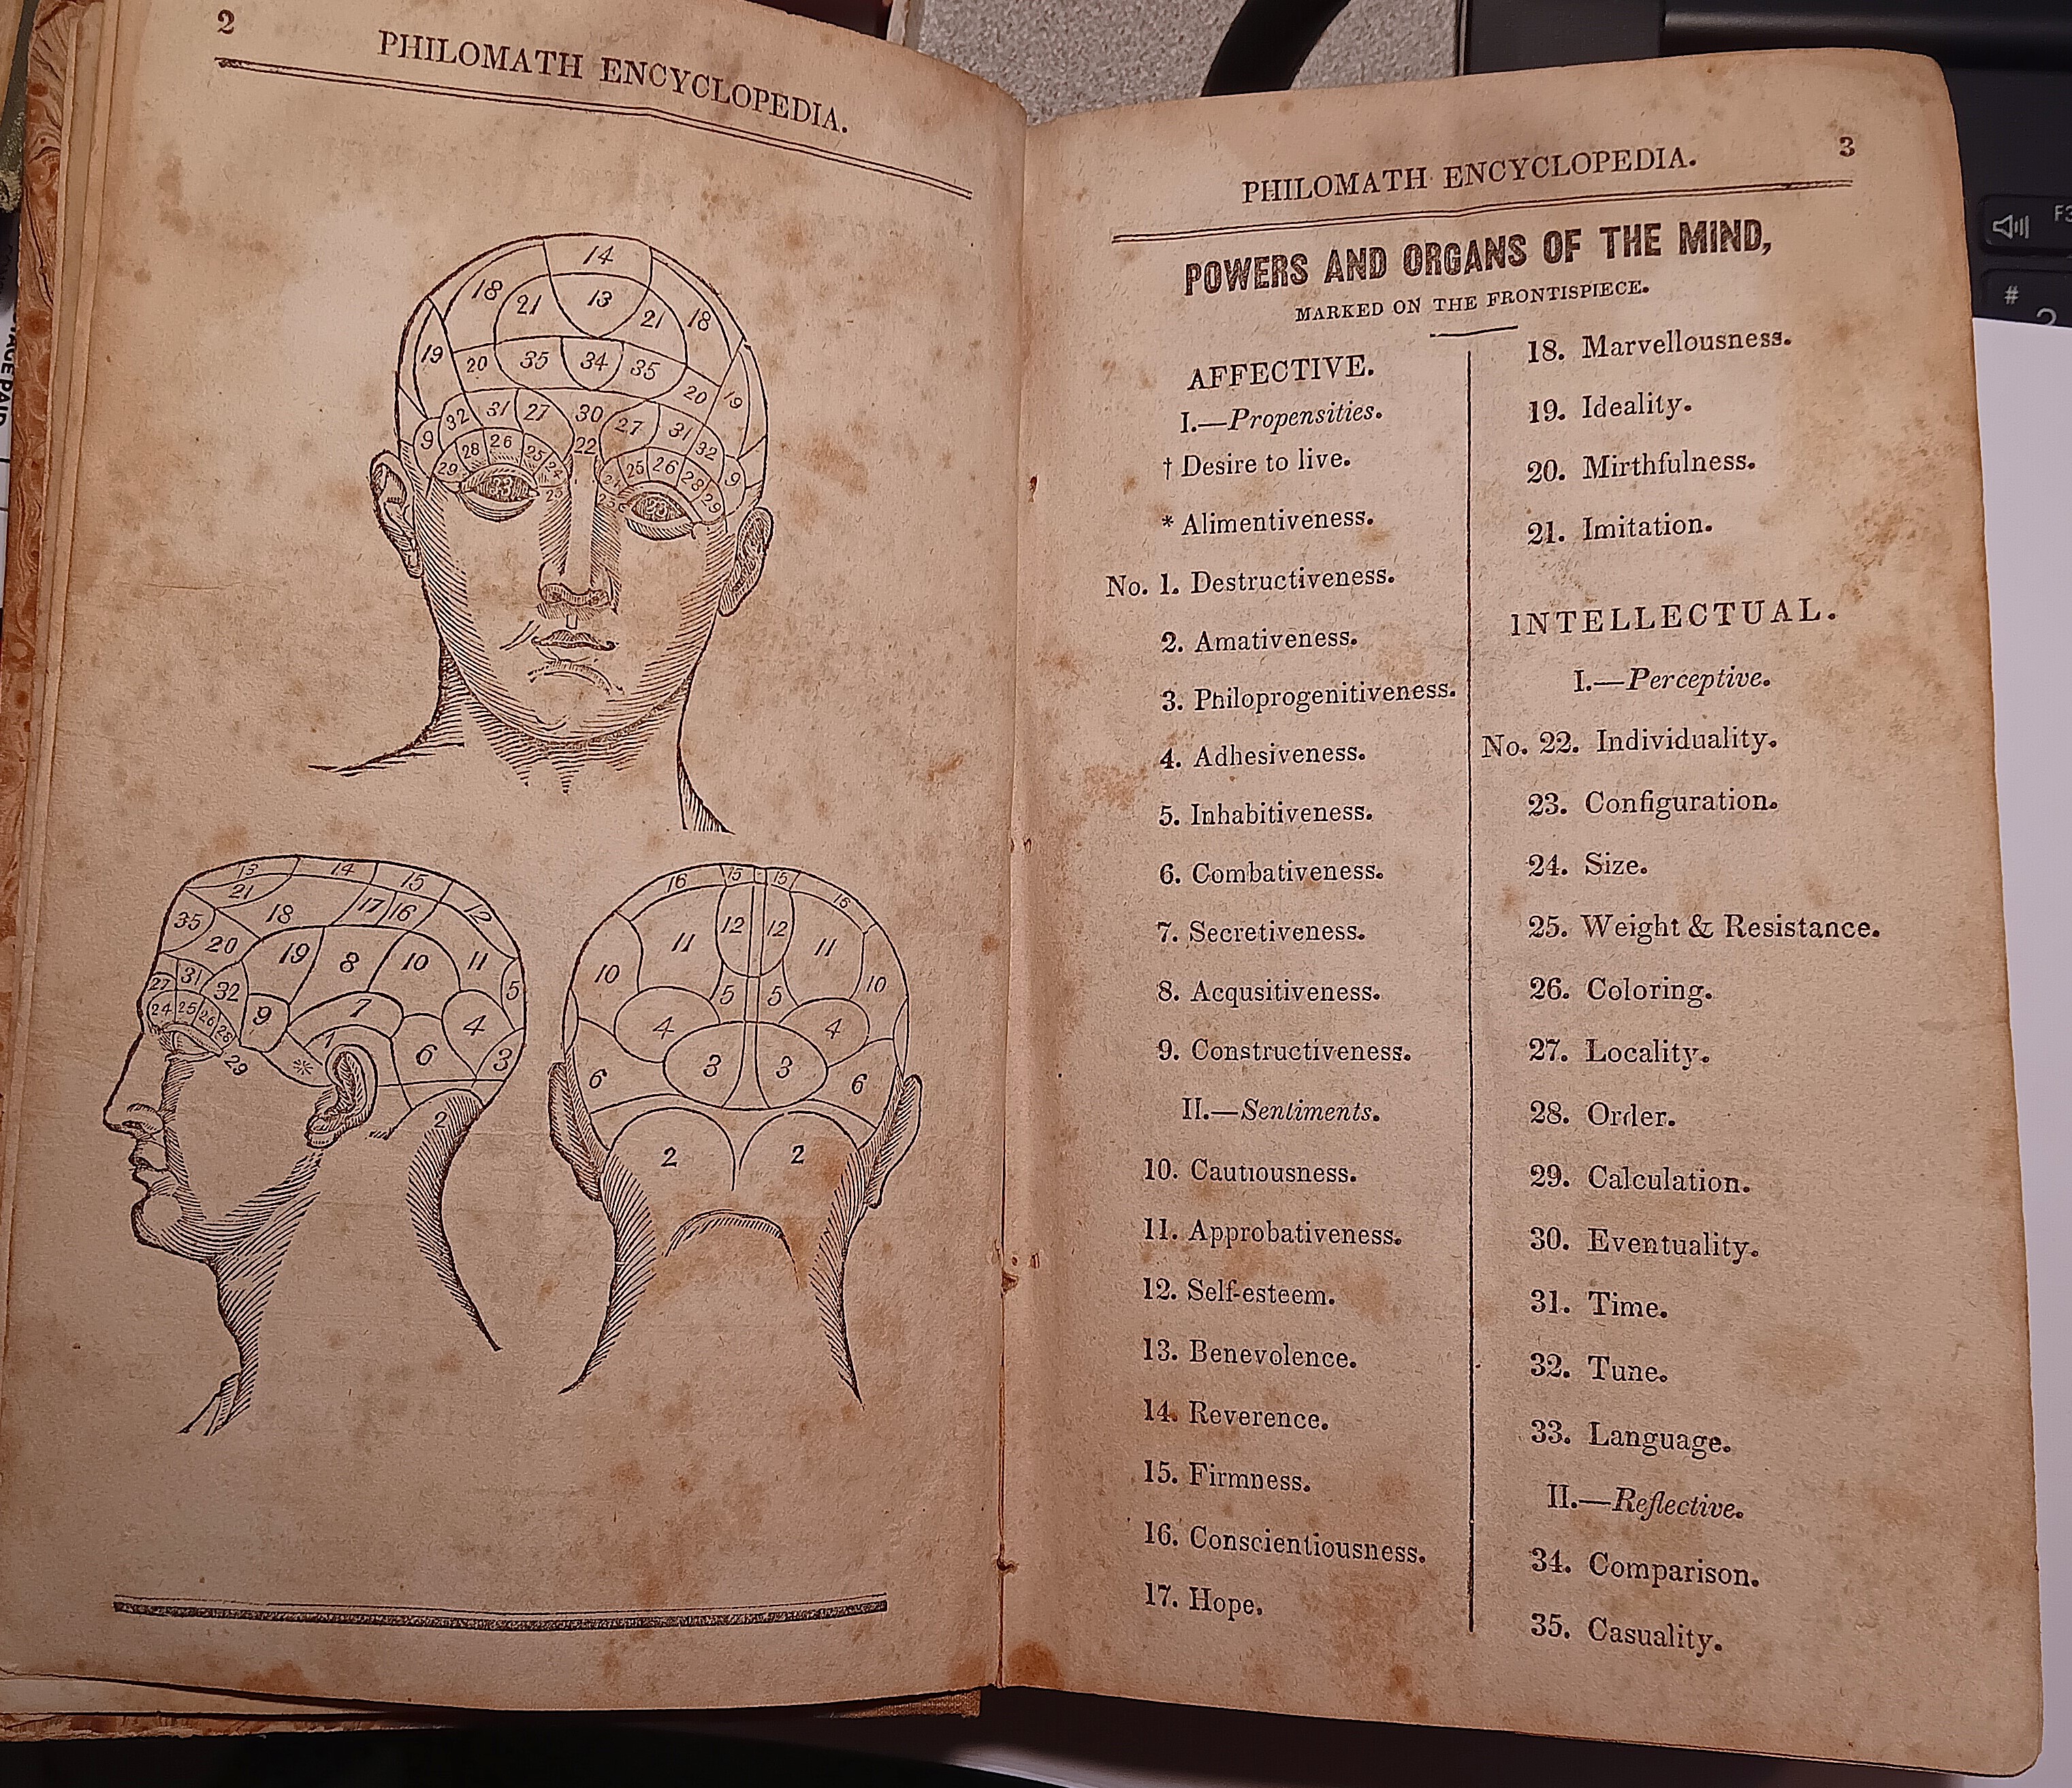 2
PHILOMATH ENCYCLOPEDIA.
14
18 21 13 21 18
19 20 35 34 35 20 19
9 32 31 27 30 27 31 32 9
29 28 26 25 24 22 25 26 28 29
33 33
13 14 15
21 18 17 16 12
35 20 19 8 10 11
27 31 32 9 7 5
24 25 26 28 1 6 4 3
29 *
2
16 15 15 16
11 12 12 11
10 5 5 10
4 4
6 3 3 6
2 2
3
PHILOMATH ENCYCLOPEDIA.
POWERS AND ORGANS OF THE MIND,
MARKED ON THE FRONTISPIECE.
AFFECTIVE.
I.—Propensities.
† Desire to live.
* Alimentiveness.
No. 1. Destructiveness.
2. Amativeness.
3. Philoprogenitiveness.
4. Adhesiveness.
5. Inhabitiveness.
6. Combativeness.
7. Secretiveness.
8. Acqusitiveness.
9. Constructiveness.
II.—Sentiments.
10. Cautiousness.
11. Approbativeness.
12. Self-esteem.
13. Benevolence.
14. Reverence.
15. Firmness.
16. Conscientiousness.
17. Hope.
18. Marvellousness.
19. Ideality.
20. Mirthfulness.
21. Imitation.
INTELLECTUAL.
I.—Perceptive.
No. 22. Individuality.
23. Configuration.
24. Size.
25. Weight & Resistance.
26. Coloring.
27. Locality.
28. Order.
29. Calculation.
30. Eventuality.
31. Time.
32. Tune.
33. Language.
II.—Reflective.
34. Comparison.
35. Casuality.
F3
#
2